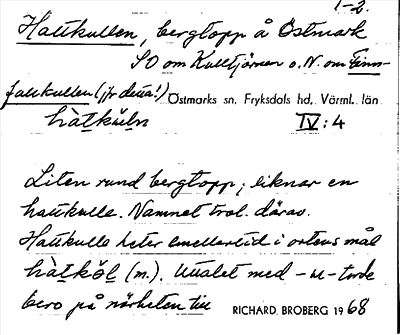 1-2.
Hattkullen, bergtopp å Östmark
SO om Kulltjärnen o. N. om Finn-
fallkullen (jfr detta!) Östmarks sn, Fryksdals hd, Värml. län
hàt̲kùl̲n IV:4
Liten rund bergtopp; liknar en
hattkulle. Namnet trol. därav.
Hattkulle heter emellertid i ortens mål
hàt̲köl̲ (m.). Uttalet med -u- torde
bero på närheten till RICHARD BROBERG 1968